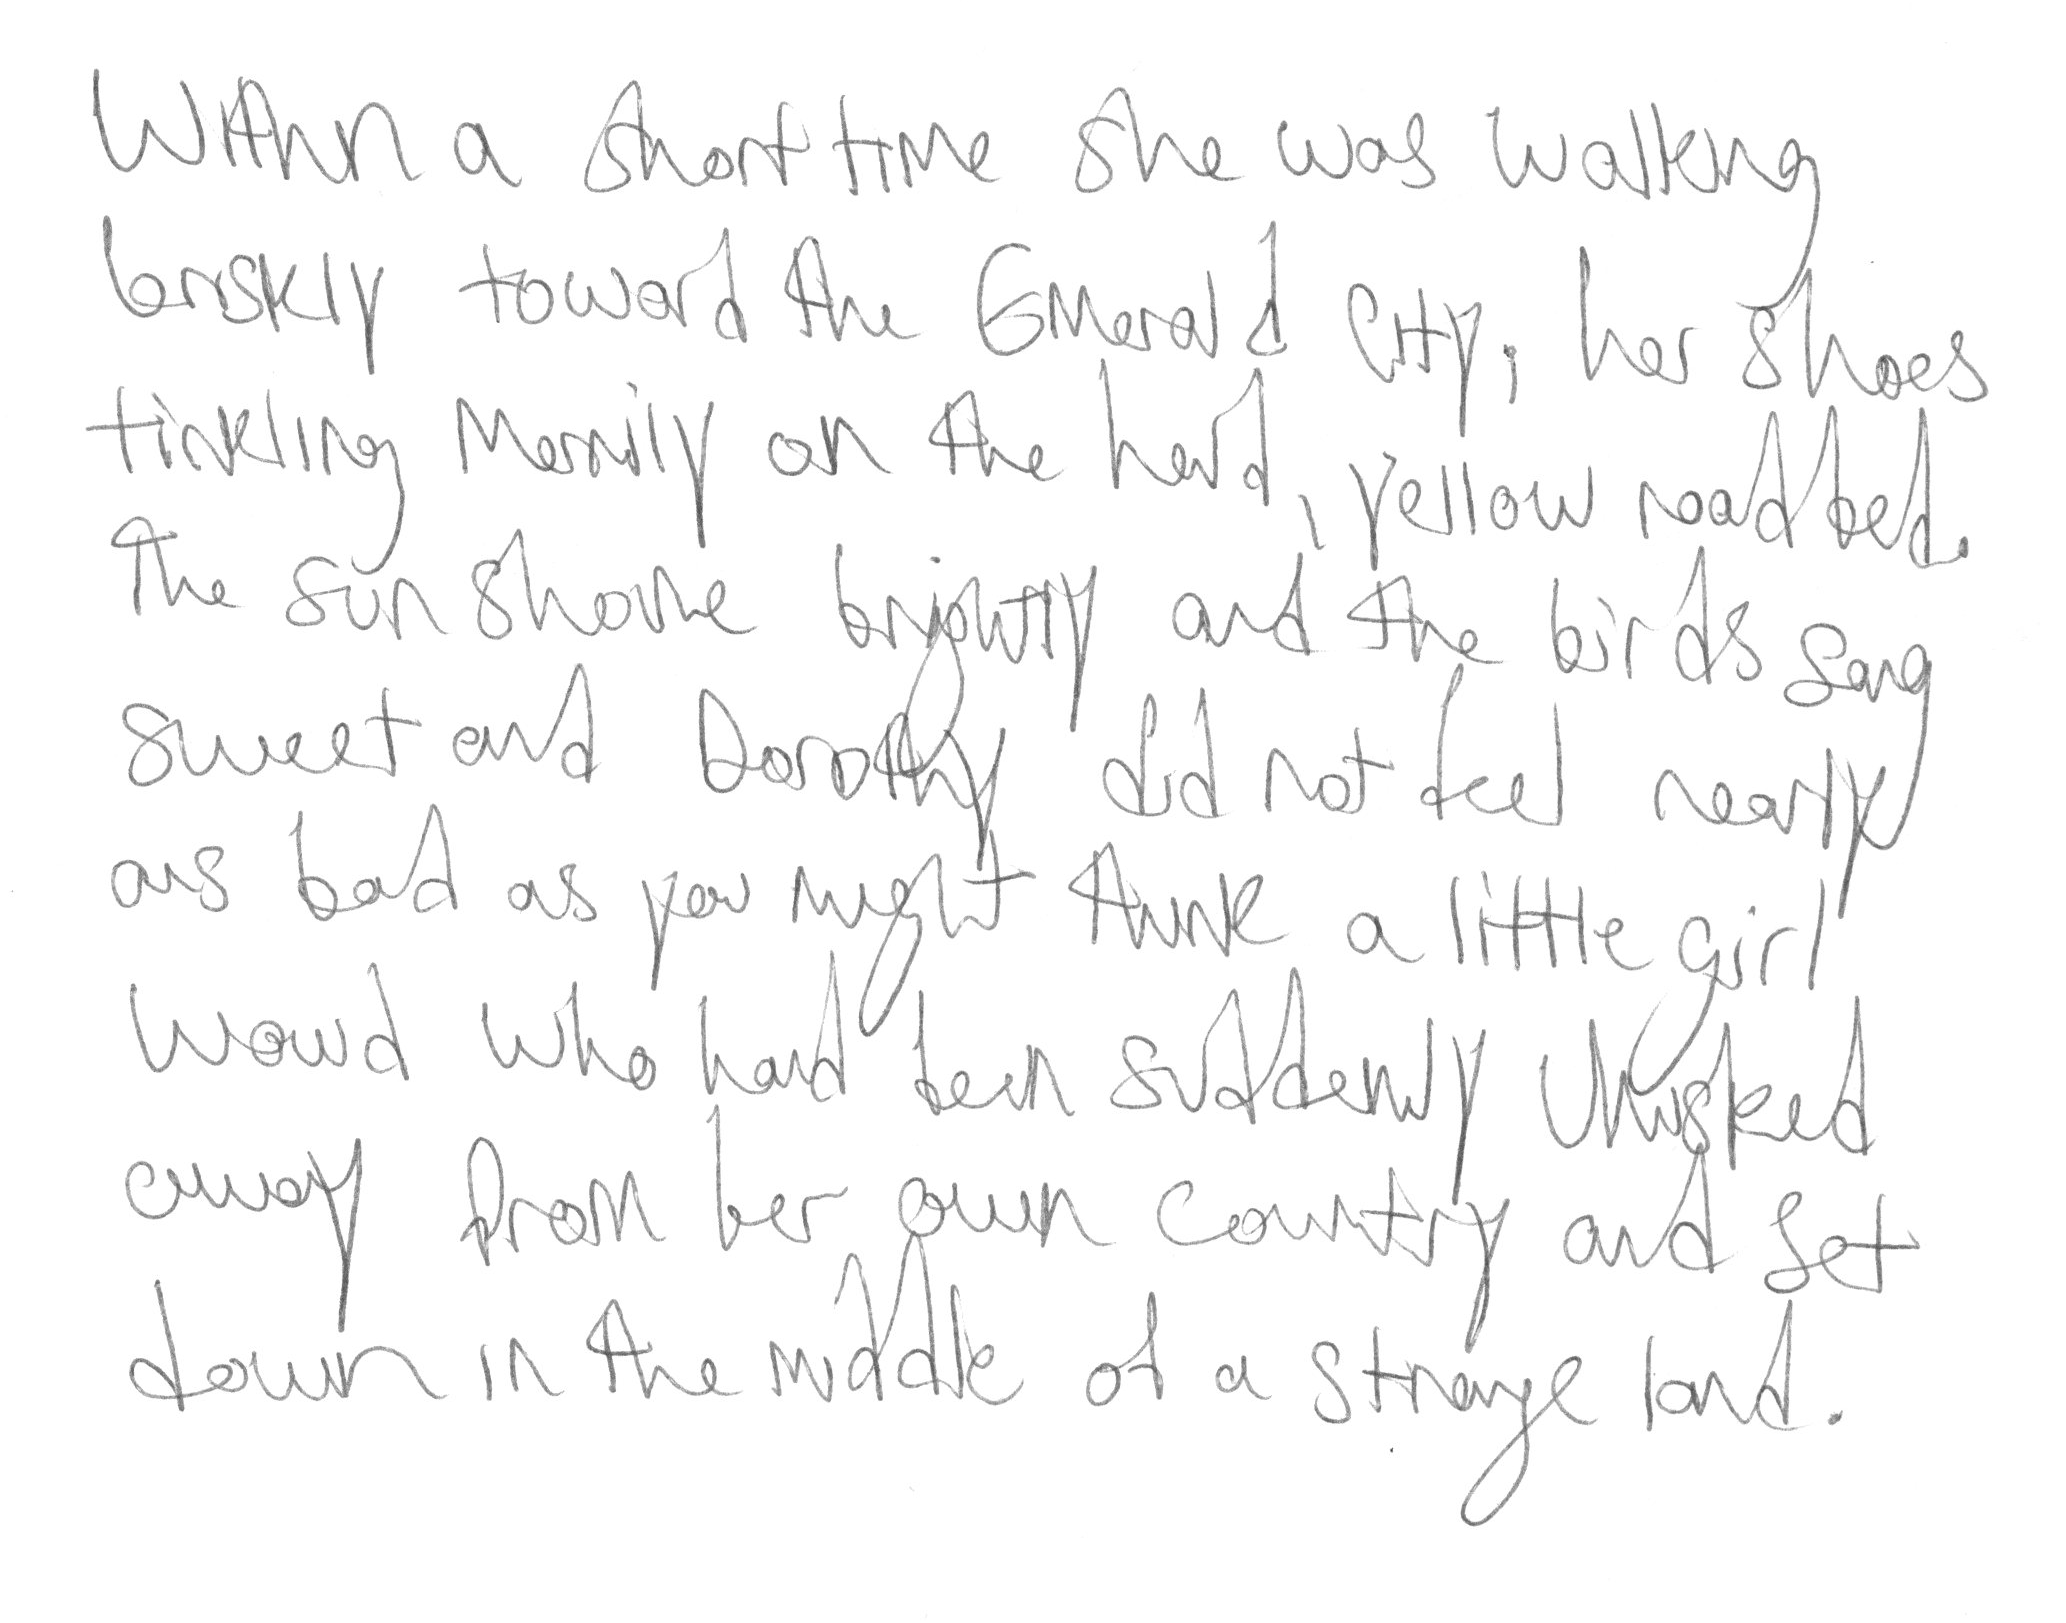 Within a short time she was walking
briskly toward the Emerald City, her shoes
tinkling merrily on the hard, yellow roadbed.
The sun shone brightly and the birds sang
sweet and Dorothy did not feel nearly
as bad as you might think a little girl
would who had been suddenly whisked
away from her own country and set
down in the middle of a strange land.